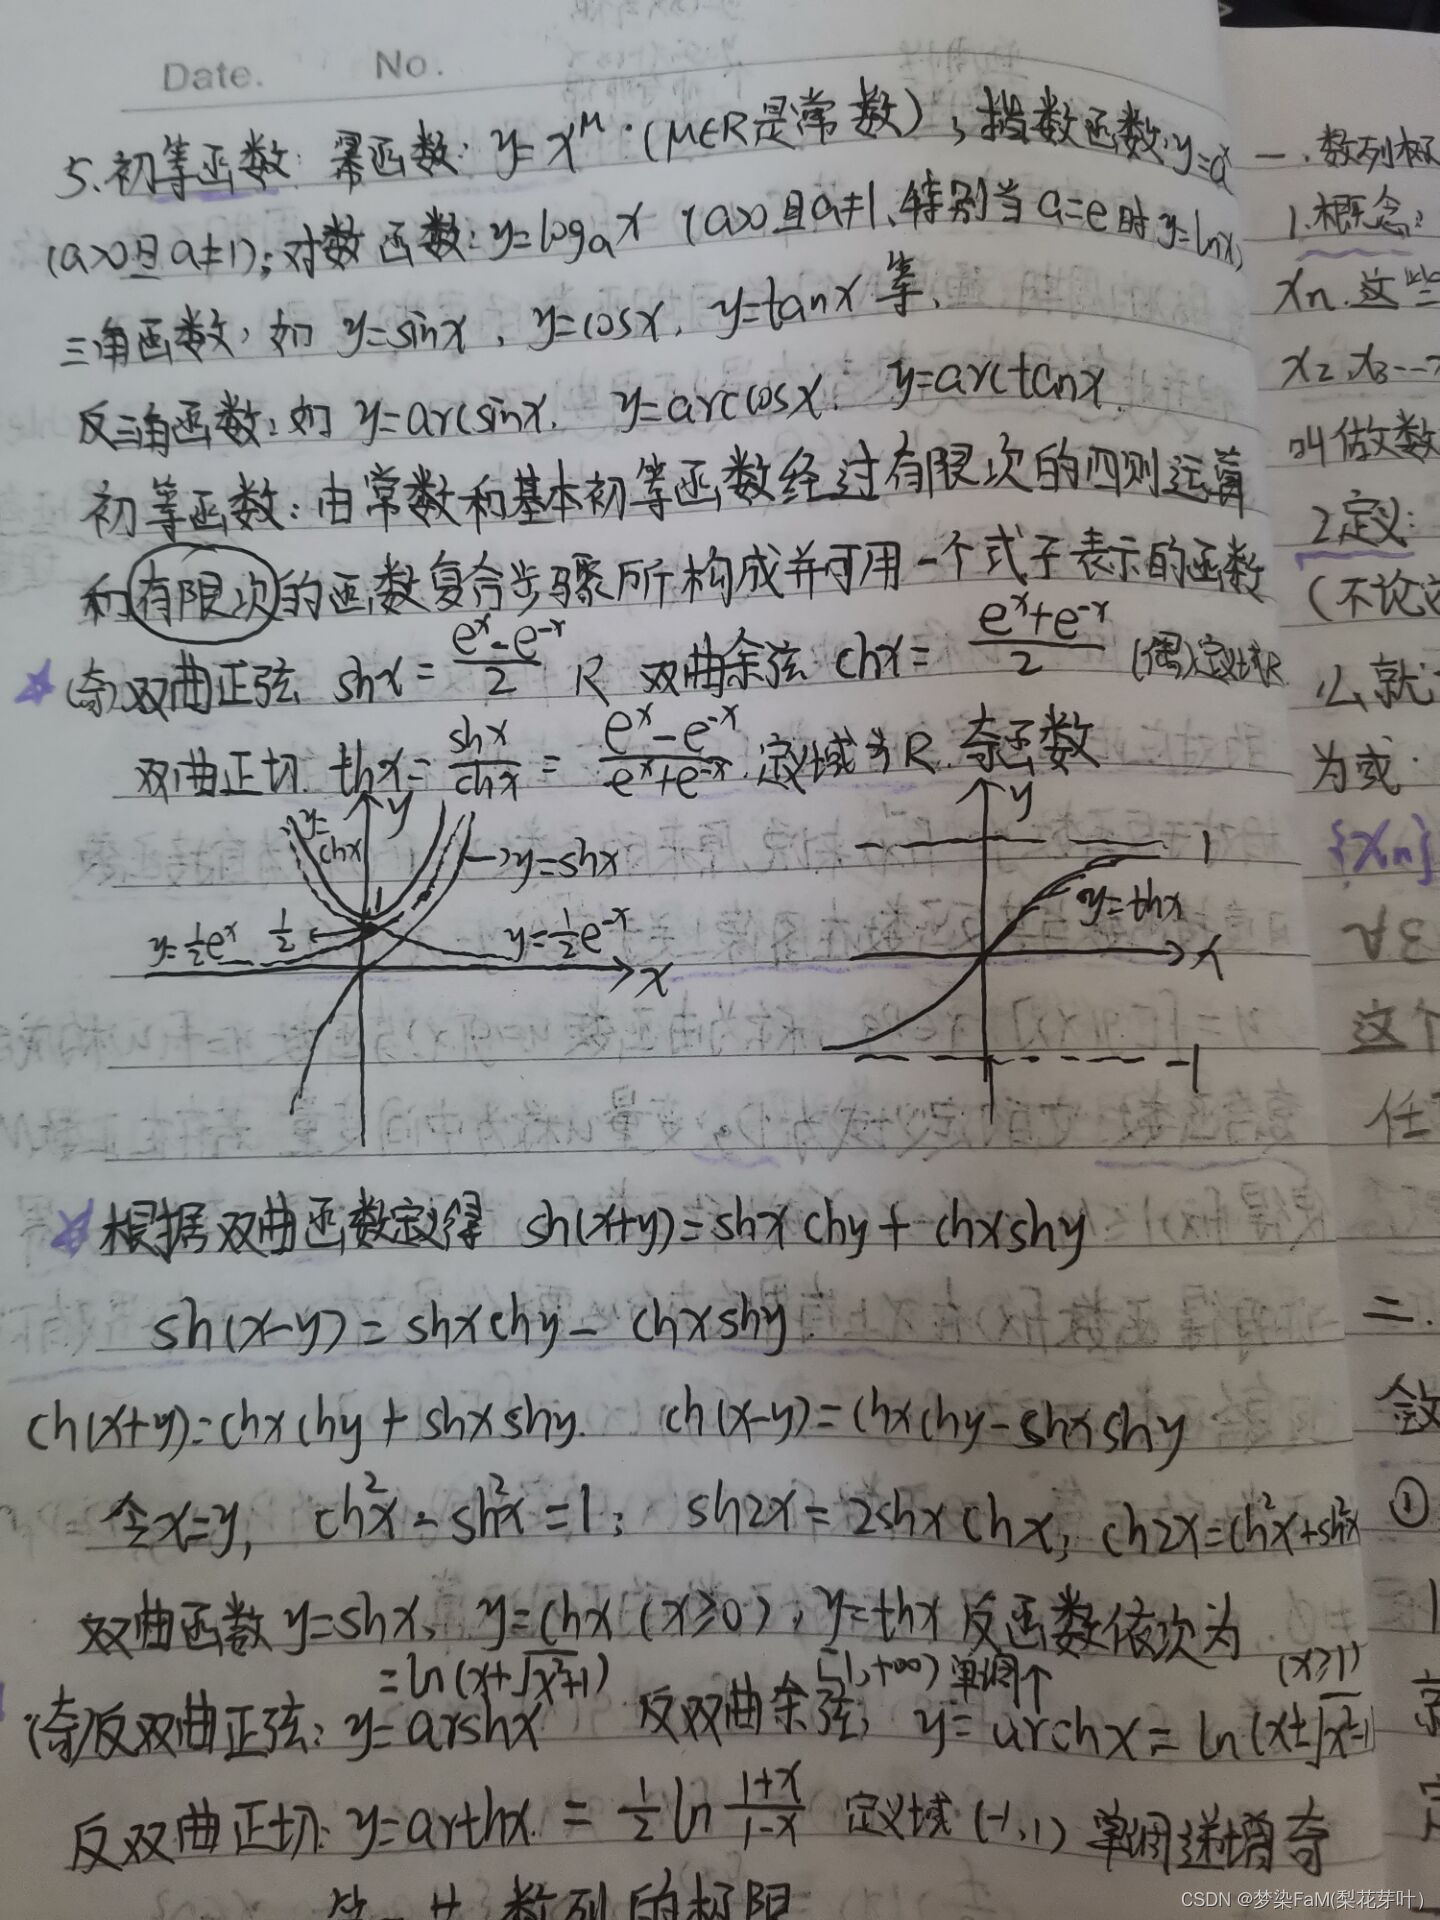 Date. No.
5.初等函数: 幂函数: y=x^μ.(μ∈R是常数), 指数函数:y=a^x
(a>0且a≠1);对数函数:y=log_a x (a>0且a≠1,特别当a=e时y=lnx)
三角函数, 如 y=sinx, y=cosx, y=tanx等,
反三角函数:如 y=arcsinx. y=arccosx. y=arctanx.
初等函数:由常数和基本初等函数经过有限次的四则运算
和有限次的函数复合步骤所构成并可用一个式子表示的函数
☆(奇)双曲正弦 shx = (e^x-e^-x)/2 R 双曲余弦 chx = (e^x+e^-x)/2 (偶)定义域R
双曲正切 thx = shx/chx = (e^x-e^-x)/(e^x+e^-x). 定义域为R. 奇函数
y
y=chx
→y=shx
1
y=½e^x
½
y=½e^-x
x
y
1
y=thx
x
-1
☆根据双曲函数定义得 sh(x+y)=shx chy + chxshy
sh(x-y)=shxchy - chxshy
ch(x+y)=chxchy + shxshy. ch(x-y)=chxchy-shxshy
令x=y, ch²x-sh²x=1; sh2x=2shxchx; ch2x=ch²x+sh²x
双曲函数y=shx, y=chx (x≥0), y=thx反函数依次为
=ln(x+√x²+1) [1,+∞)单调↑ (x≥1)
(奇)反双曲正弦: y=arshx 反双曲余弦; y=archx=ln(x±√x²-1
反双曲正切: y=arthx. = ½ln (1+x)/(1-x) 定义域(-1,1) 单调递增奇
数列的极限
一.数列极
1.概念:
xn.这些
x2,x3--
叫做数
2定义:
(不论
么就
为或
{xn}
这个
任
二.
①
CSDN @梦染FaM(梨花芽叶)